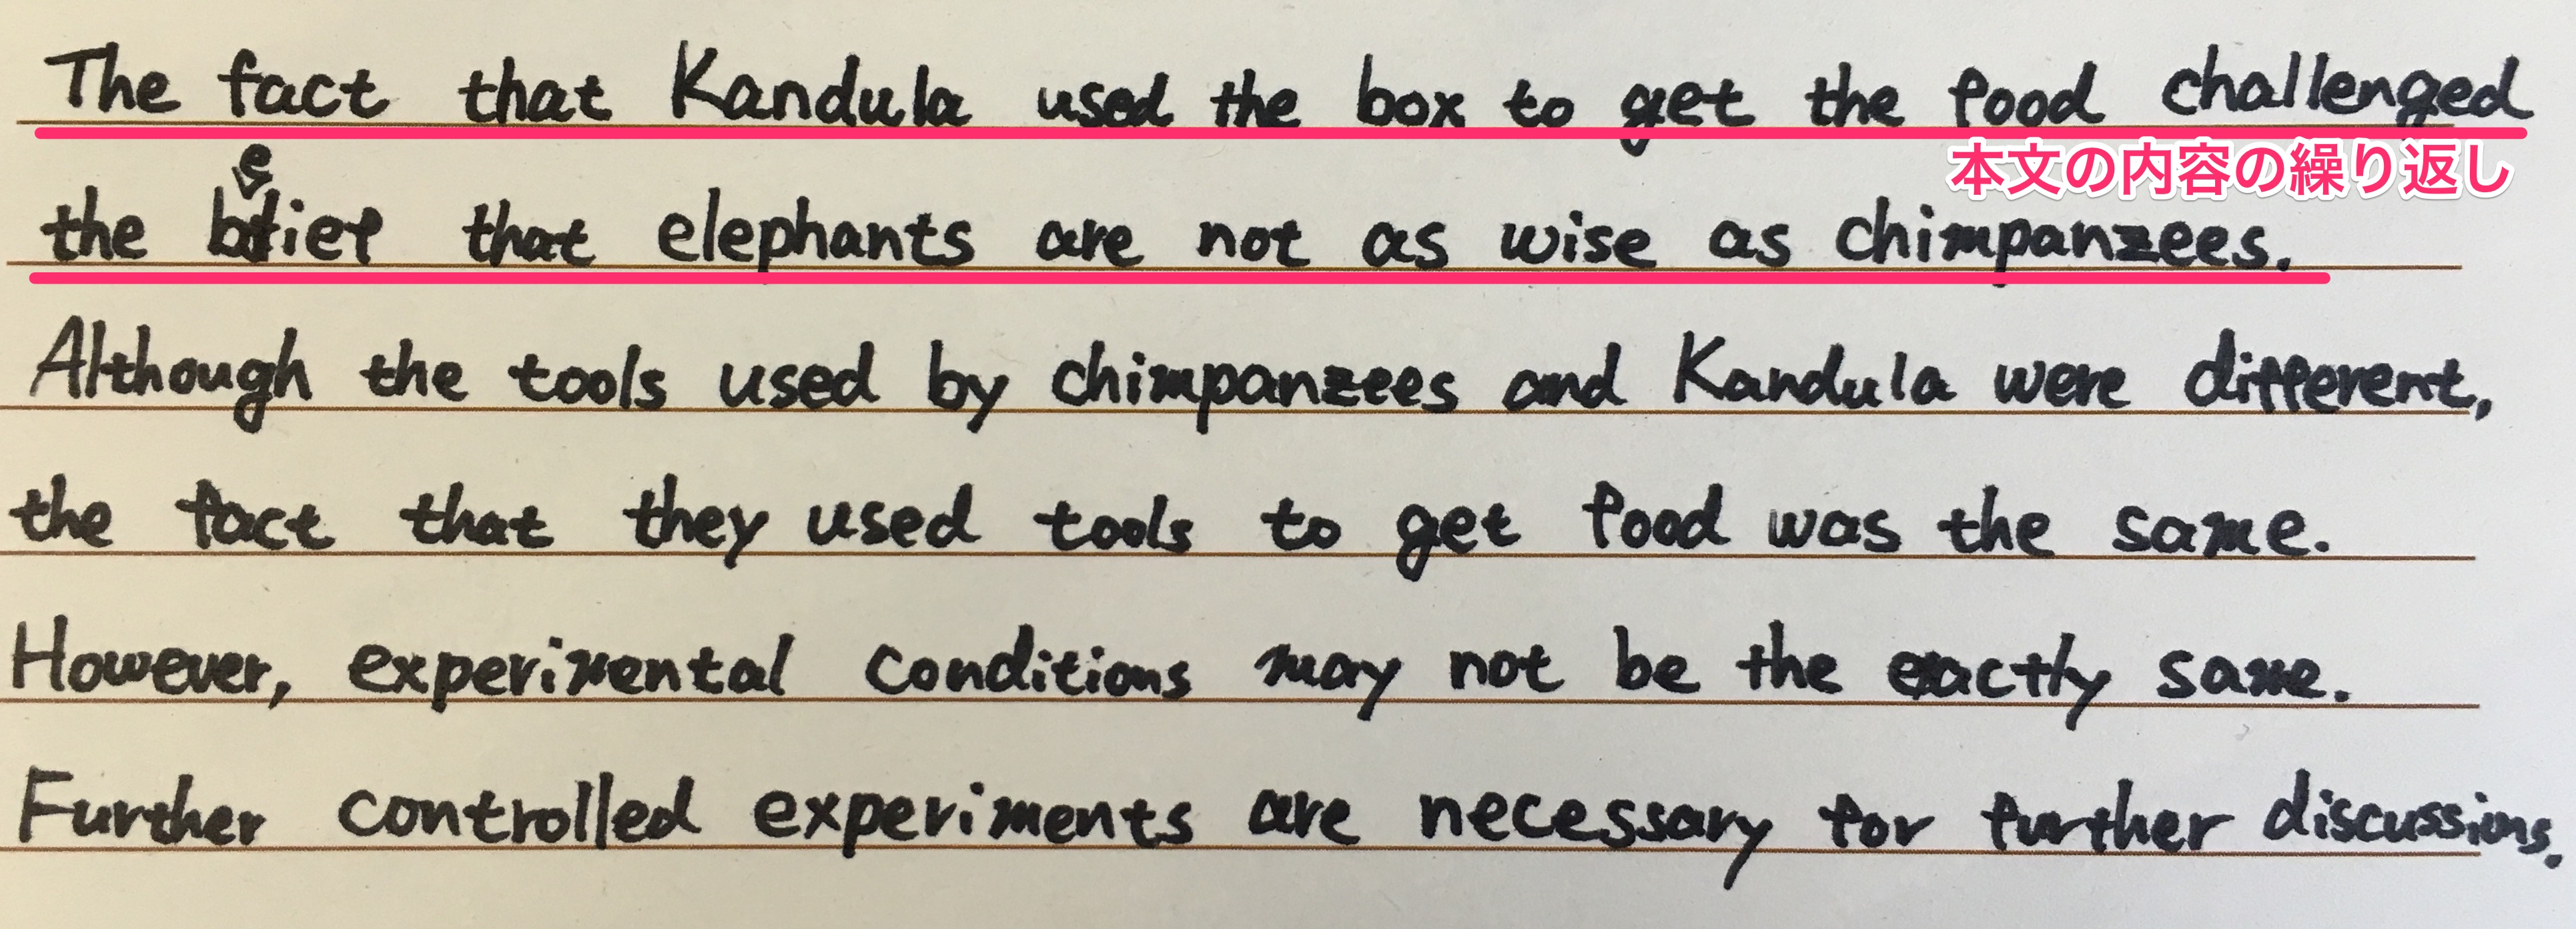 The fact that Kandula used the box to get the food challenged
本文の内容の繰り返し
the belief that elephants are not as wise as chimpanzees.
Although the tools used by chimpanzees and Kandula were different,
the fact that they used tools to get food was the same.
However, experimental conditions may not be the exactly same.
Further controlled experiments are necessary for further discussions.